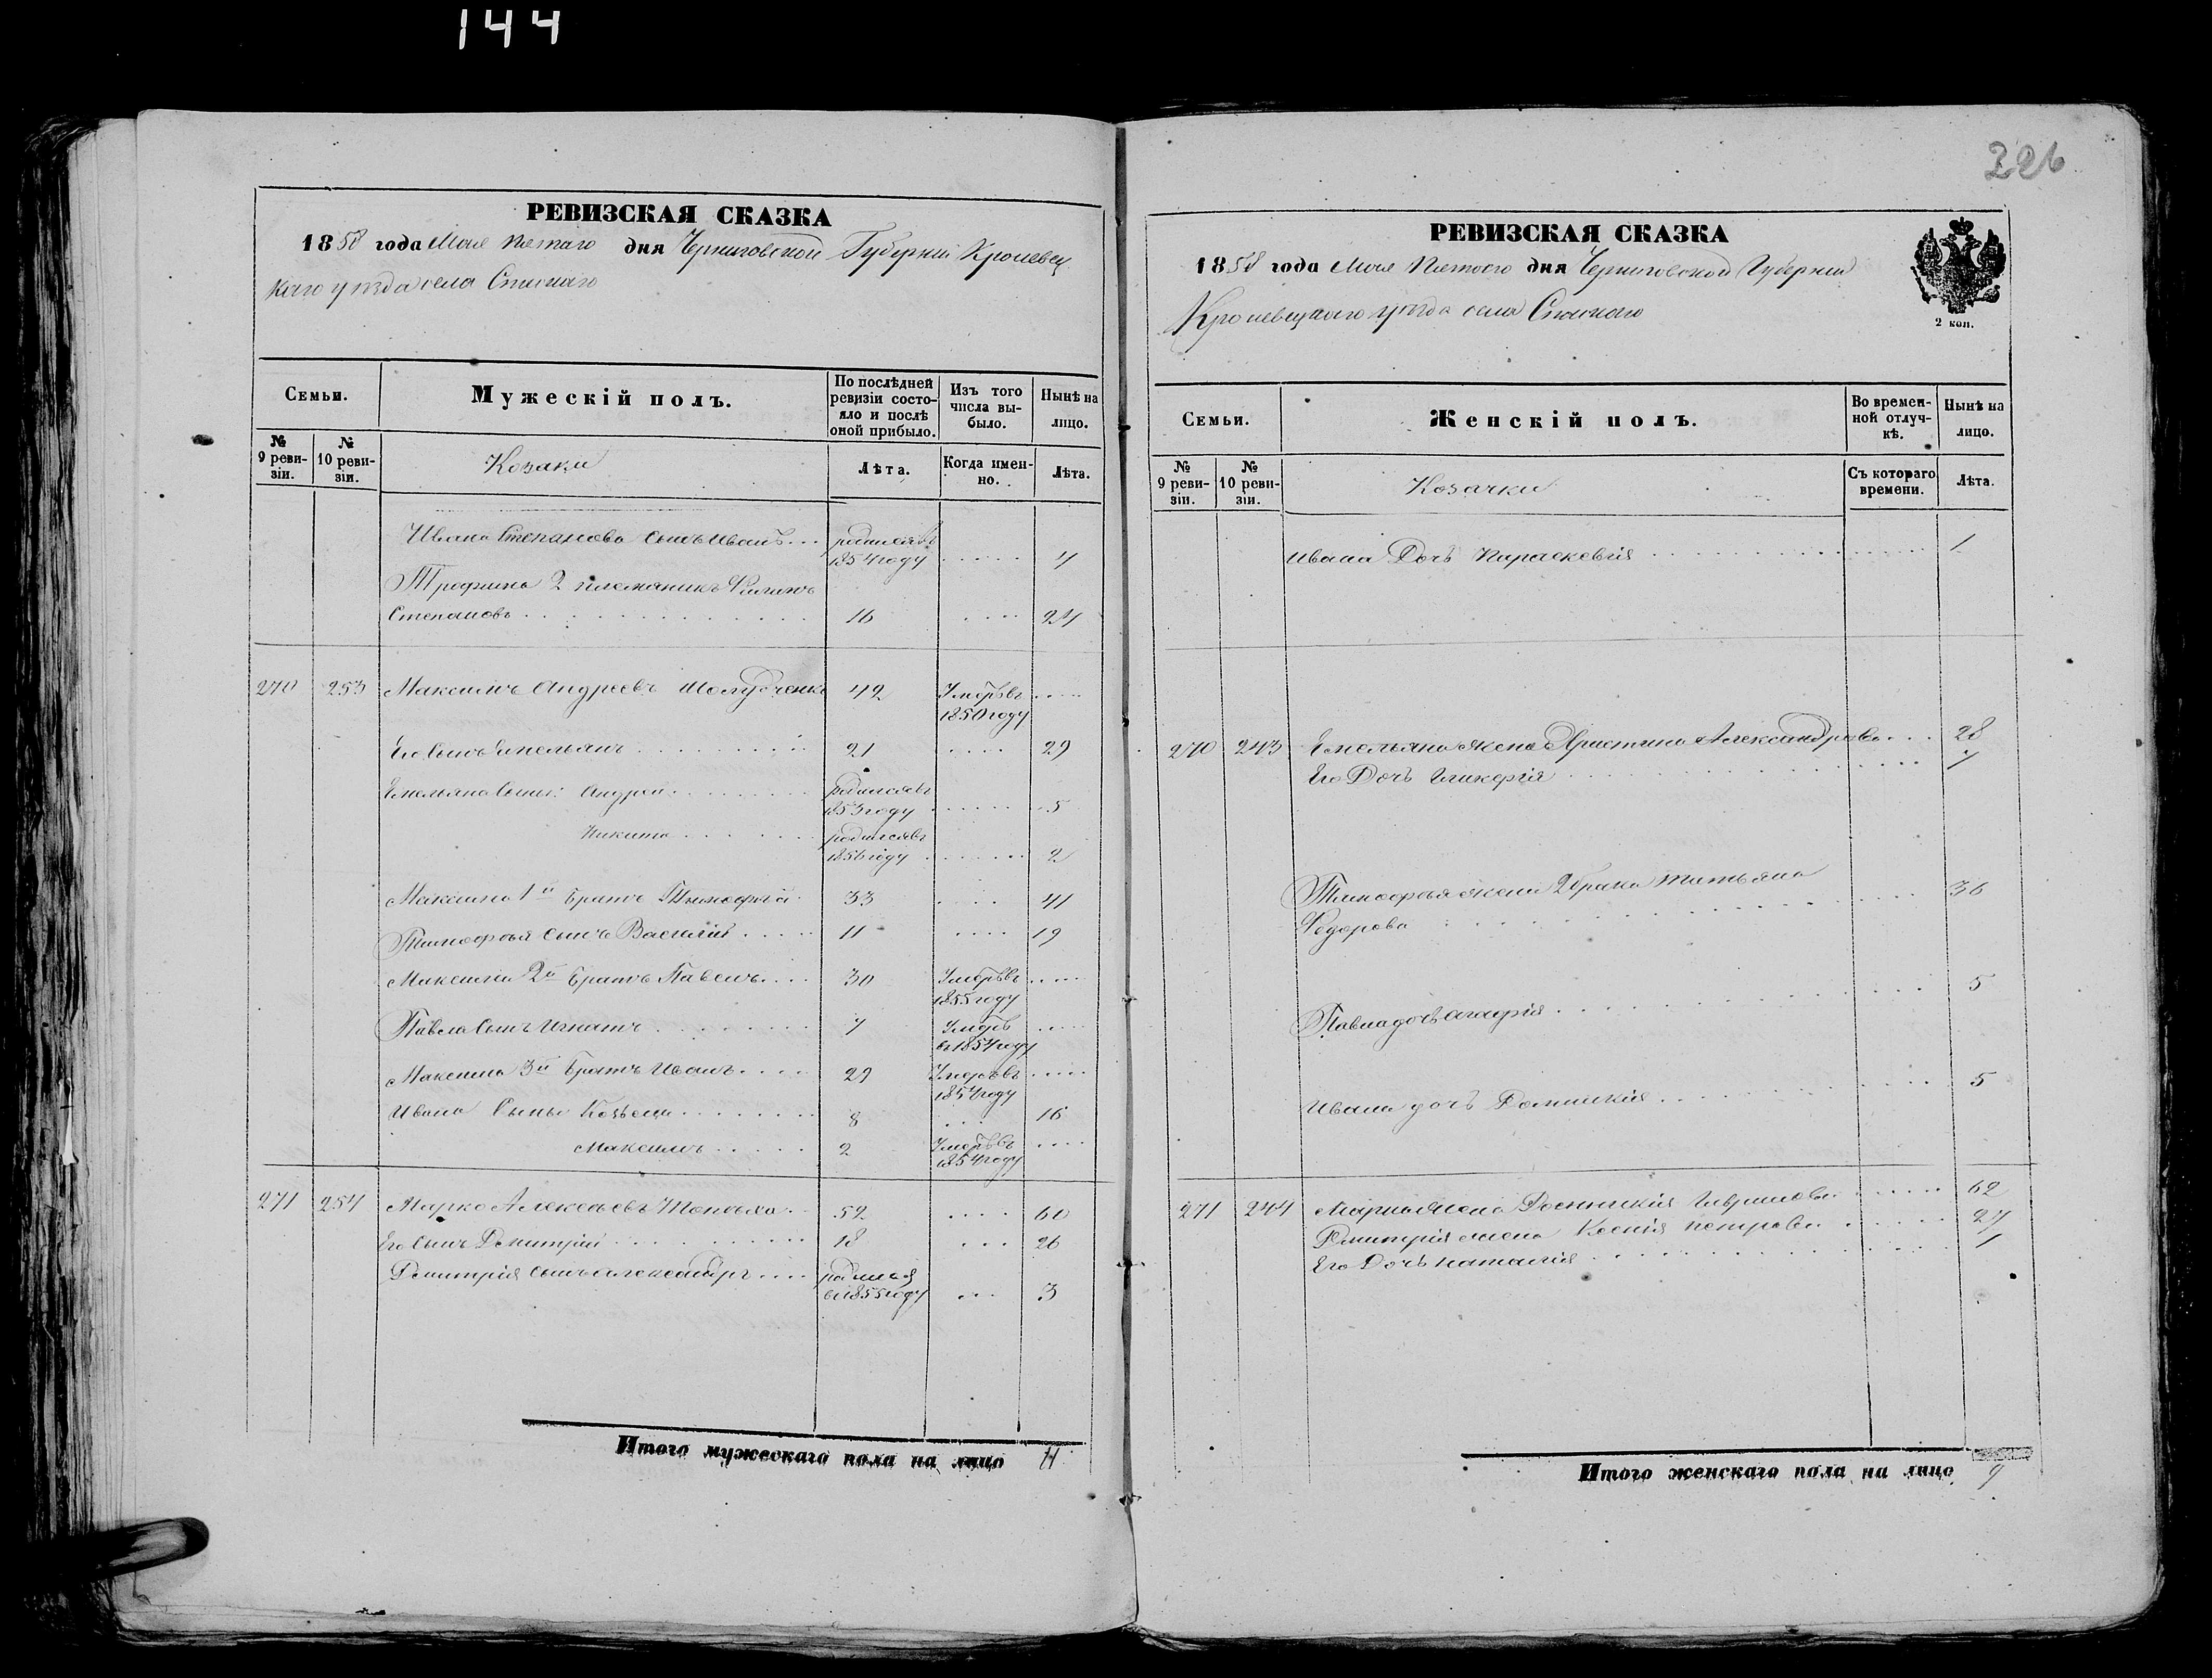 144
326
РЕВИЗСКАЯ СКАЗКА
1858 года Мая Пятаго дня Черниговской Губерніи Кролевец
каго уѣзда села Спаскаго
Семьи.
Мужескій полъ.
По послѣдней ревизіи состояло и послѣ оной прибыло.
Изъ того числа выбыло.
Нынѣ на лицо.
№ 9 ревизіи.
№ 10 ревизіи.
Козаки
Лѣта.
Когда именно.
Лѣта.
Ивана Степанова сынъ Иванъ... родился въ 1854 году ..... 4
Трофима 2 племяникъ
Степановъ . . . 16 .... 24
270 253 Максимъ Андреевъ 42 Умеръ въ 1850 году ....
Его Сынъ Емельянъ . . . 21 .... 29
Емельяна Сыны: Андрей . . . родился въ 1853 году ..... 5
Никита . . . родился въ 1856 году ...... 2
Максима 1й Братъ Тимофѣй 33 .... 41
Тимофѣя сынъ Василій .... 11 .... 19
Максима 2й Братъ Павелъ .... 30 Умеръ въ 1855 году .....
Павла Сынъ Игнатъ . . . 7 Умеръ въ 1854 году ....
Максима 3й Братъ Иванъ .... 29 Умеръ въ 1854 году .....
Ивана Сыны Козьма . . . 8 ... 16
Максимъ ..... 2 Умеръ въ 1854 году ....
271 254 Марко Алексѣевъ 52 .... 60
Его Сынъ Дмитрій . . . 18 ... 26
Дмитрія сынъ Александръ .... родился въ 1855 году ... 3
Итого мужескаго пола на лицо 11
РЕВИЗСКАЯ СКАЗКА
1858 года Мая Пятаго дня Черниговской Губерніи
Кролевецкаго уѣзда села Спаскаго
2 коп.
Семьи.
Женскій полъ.
Во временной отлучкѣ.
Нынѣ на лицо.
№ 9 ревизіи.
№ 10 ревизіи.
Козачки
Съ котораго времени.
Лѣта.
Ивана Дочь Параскевія . . . 1
270 243 Емельяна жена Христина Александрова... 28
Его Дочь Гликерія . . . 7
Тимофѣя жена 2 брака Татьяна
Федорова . . . 36
Павла дочь Агафія . . . 5
Ивана дочь Домникія . . . 5
271 244 Марка жена Домникія Гаврилова ..... 62
Дмитрія жена Ксенія Петрова ..... 27
Его Дочь Наталія . . . 1
Итого женскаго пола на лицо 9